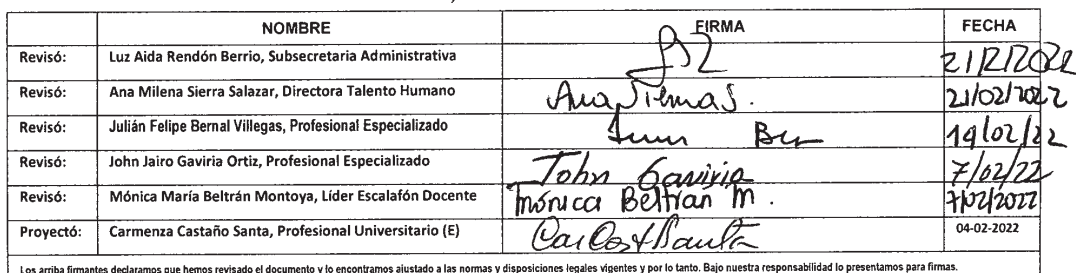 NOMBRE FIRMA FECHA
Revisó: Luz Aida Rendón Berrio, Subsecretaria Administrativa 21/2/2022
Revisó: Ana Milena Sierra Salazar, Directora Talento Humano Ana Sierra S. 21/02/2022
Revisó: Julián Felipe Bernal Villegas, Profesional Especializado 14/02/22
Revisó: John Jairo Gaviria Ortiz, Profesional Especializado John Gaviria 7/02/22
Revisó: Mónica María Beltrán Montoya, Líder Escalafón Docente Mónica Beltrán M. 7/02/2022
Proyectó: Carmenza Castaño Santa, Profesional Universitario (E) 04-02-2022
Los arriba firmantes declaramos que hemos revisado el documento y lo encontramos ajustado a las normas y disposiciones legales vigentes y por lo tanto. Bajo nuestra responsabilidad lo presentamos para firmas.